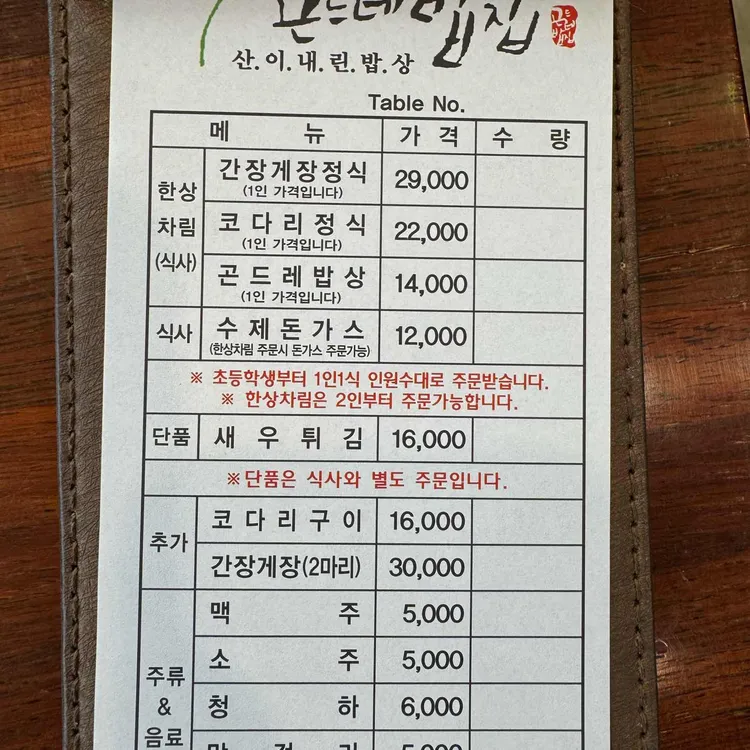 곤드레밥집
곤드레밥집
산.이.내.린.밥.상
Table No.
메 뉴 가 격 수 량
한상차림(식사)
간장게장정식 29,000
(1인 가격입니다)
코다리정식 22,000
(1인 가격입니다)
곤드레밥상 14,000
(1인 가격입니다)
식사 수제돈가스 12,000
(한상차림 주문시 돈가스 주문가능)
※ 초등학생부터 1인1식 인원수대로 주문받습니다.
※ 한상차림은 2인부터 주문가능합니다.
단품 새우튀김 16,000
※단품은 식사와 별도 주문입니다.
추가
코다리구이 16,000
간장게장(2마리) 30,000
주류 & 음료
맥 주 5,000
소 주 5,000
청 하 6,000